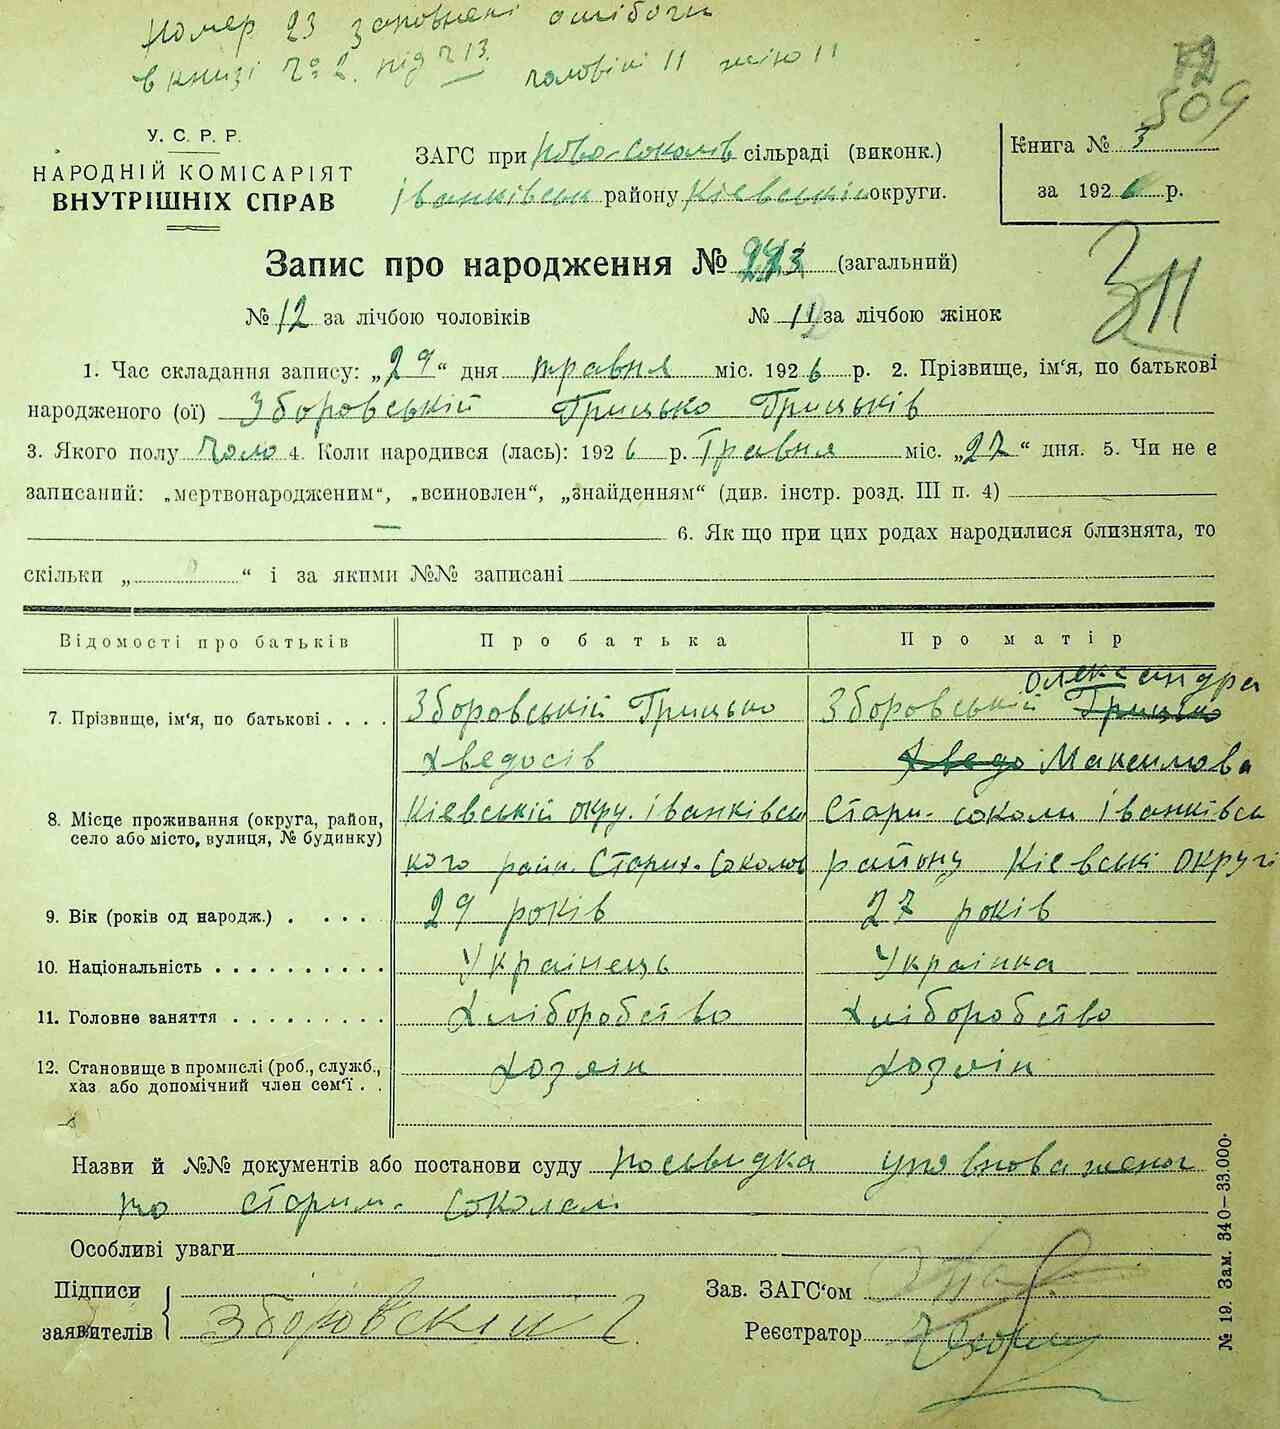 Номер 23 заповнені ошібочи
в книзі № 2. під ч 13. чоловікі 11 жіно 11
509
У. С. Р. Р.
НАРОДНІЙ КОМІСАРІЯТ
ВНУТРІШНІХ СПРАВ
ЗАГС при Ново-соколів сільраді (виконк.)
Іванківськ району Кіевськів округи.
Книга № 3
за 1926 р.
Запис про народження № (загальний)
311
№ 12 за лічбою чоловіків № 11 за лічбою жінок
1. Час складання запису: „29“ дня травня міс. 1926 р. 2. Прізвище, ім'я, по батькові
народженого (ої) Зборовській Грицько Грицьків
3. Якого полу чоло 4. Коли народився (лась): 1926 р. Травня міс. „27“ дня. 5. Чи не є
записаний: „мертвонародженим“, „всиновлен“, „знайденням“ (див. інстр. розд. III п. 4)
— 6. Як що при цих родах народилися близнята, то
скільки „ “ і за якими №№ записані
Відомості про батьків Про батька Про матір
Олександра
7. Прізвище, ім'я, по батькові . . . . Зборовській Грицько Зборовській Грицько
Хведосів Хведо Максимова
8. Місце проживання (округа, район, село або місто, вулиця, № будинку) Кіевській окру. іванківсь Стари-соколи іванківсь
кого райн. Старих-Соколов району Кіевські округі
9. Вік (років од народж.) . . . . 29 років 27 років
10. Національність . . . . . . . . . . Украінець Украінка
11. Головне заняття . . . . . . . . . Хліборобство Хліборобство
12. Становище в промислі (роб., служб., хаз. або допомічний член сем'ї . . Хозяін Хозяін
Назви й №№ документів або постанови суду посьвідка уповноваженог
по старим-соколам
Особливі уваги
Підписи
заявителів Зборовский Г.
Зав. ЗАГС'ом
Реєстратор
№ 19. Зам. 340—33.000·